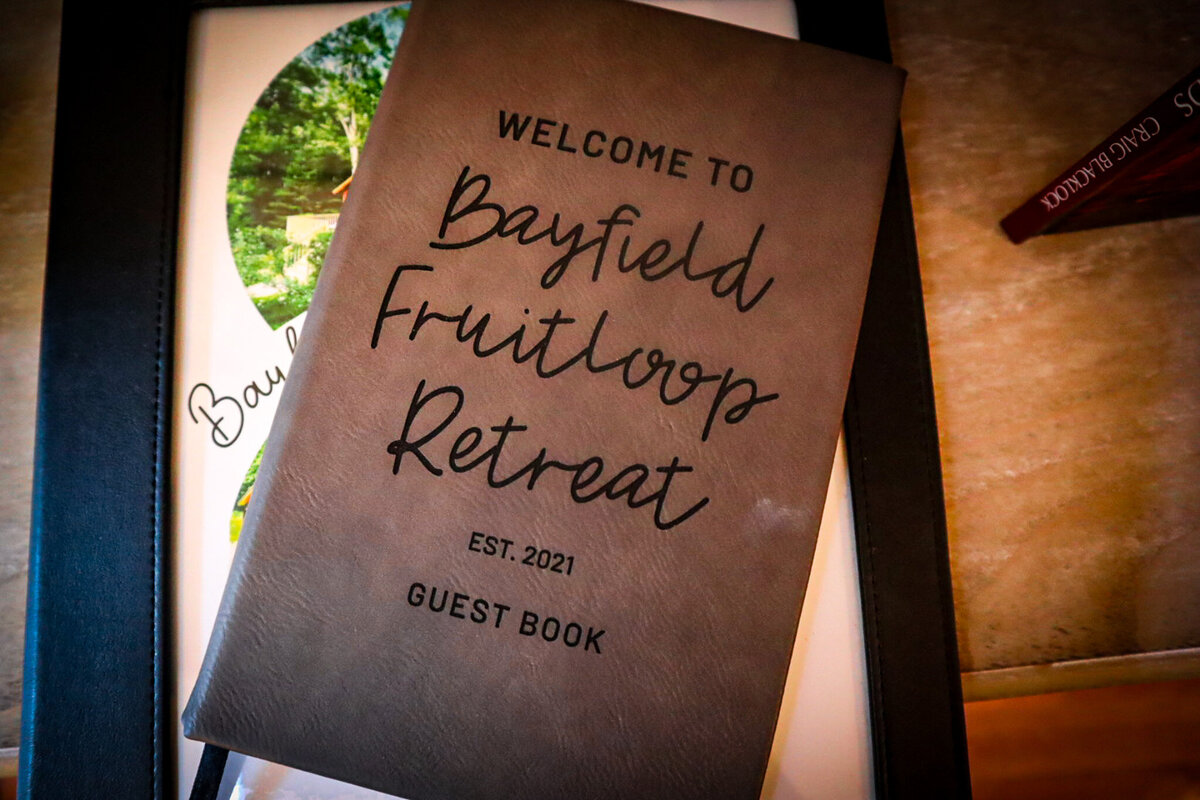 WELCOME TO
Bayfield
Fruitloop
Retreat
EST. 2021
GUEST BOOK
CRAIG BLACKLOCK